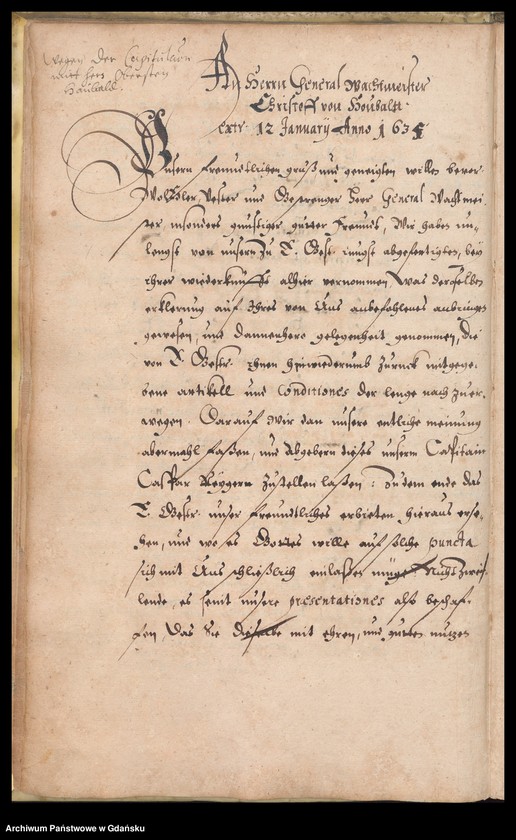 Wegen der Capitulation
mitt hern Obersten
Houbaldt.
An Herrn General Wachtmeister
Christoff von Houbaldt.
extr. 12 January Anno 1635
Unsern freundtlichen gruß und geneigten willen bevor.
WolEdler, Vester und Gestrenger Herr General Wachtmei-
ster insonders gunstiger gutter Freundt, Wir haben un-
lengst von unsern zu E. Gestr. jungst abgefertigten, bey
ihrer wiederkunfft alhier vernommen, was deroselben
erklerung auf Ihres von Uns anbefohlenes anbringen
gewesen, und dannenhero gelegenheit genommen, die
von E. Gestr. ihnen hinwiederumb zuruck mitgege-
bene artikell und Conditiones der lenge nach zu er-
wegen. Darauf Wir dan unsere entliche meinung
abermahl faßen, und Abgebern dieses unserm Capitain
Caspar Reygern zustellen laßen: Zu dem ende das
E. Gestr. unser freundtliches erbieten hieraus erse-
hen, und wo es Gottes wille auf solche puncta
sich mit Uns schließlich einlaßen müge. Nicht zweif-
lende, es seint unsere præsentationes also beschaf-
fen, das Sie dieselbe mit ehren, und gutten nutzen
Archiwum Państwowe w Gdańsku